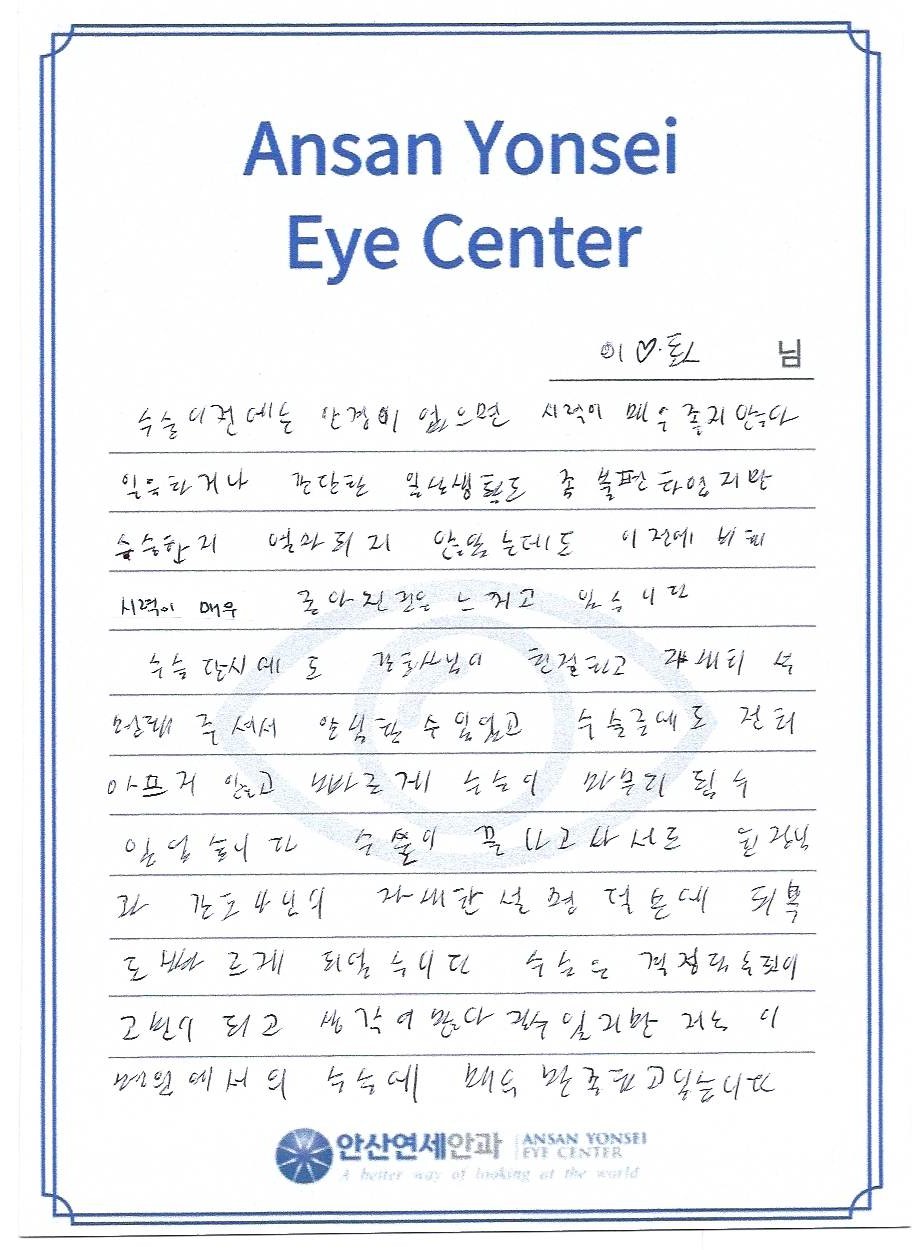 Ansan Yonsei
Eye Center
이♡화 님
수술 이전에는 안경이 없으면 시력이 매우 좋지 않는다
일을하거나 간단한 일상생활도 좀 불편하였지만
수술한지 얼마되지 않았는데도 이전에 비해
시력이 매우 좋아진걸 느끼고 있습니다
수술 당시에도 간호사님이 친절하고 자세히 설
명해 주셔서 안심할 수 있었고 수술중에도 전혀
아프지 않고 빠르게 수술이 마무리 될 수
있었습니다 수술이 끝나고 나서도 원장님
과 간호사님의 자세한 설명 덕분에 회복
도 빠르게 되었습니다 수술은 걱정과
고민이 되고 생각이 많다 저는 이
병원에서의 수술에 매우 만족하고있습니다
안산연세안과 ANSAN YONSEI
EYE CENTER
A better way of looking at the world